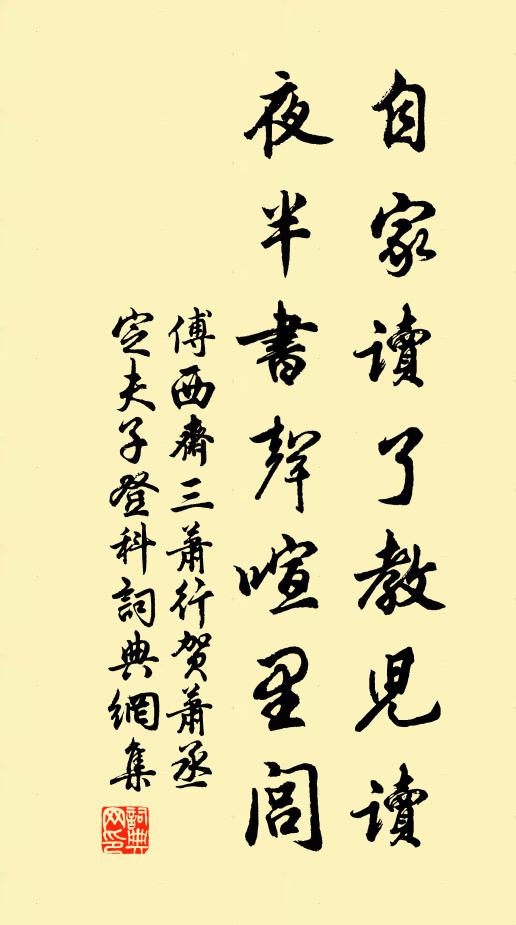 自家讀了教児讀
夜半書聲喧里閭
傅西齋三蕭行賀蕭丞
定夫子登科詞典網集
詞典
网印